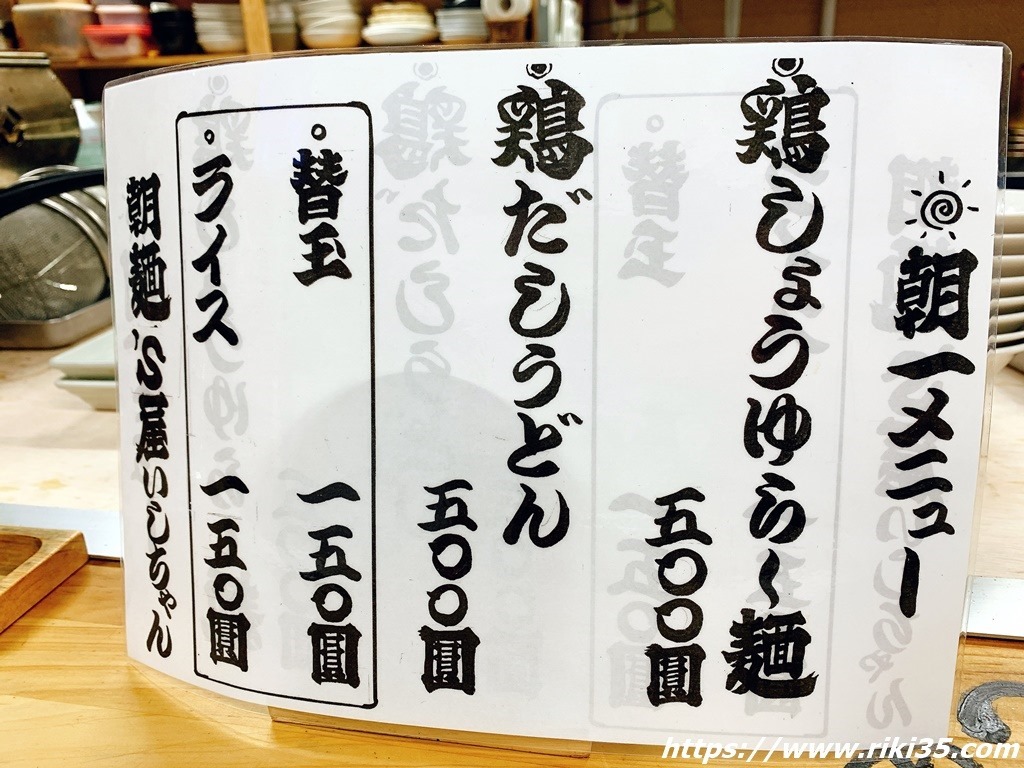 朝一メニュー
鶏しょうゆら〜麺
五〇〇圓
鶏だしうどん
五〇〇圓
替玉
一五〇圓
ライス
一五〇圓
朝麺'S屋いしちゃん
https://www.riki35.com